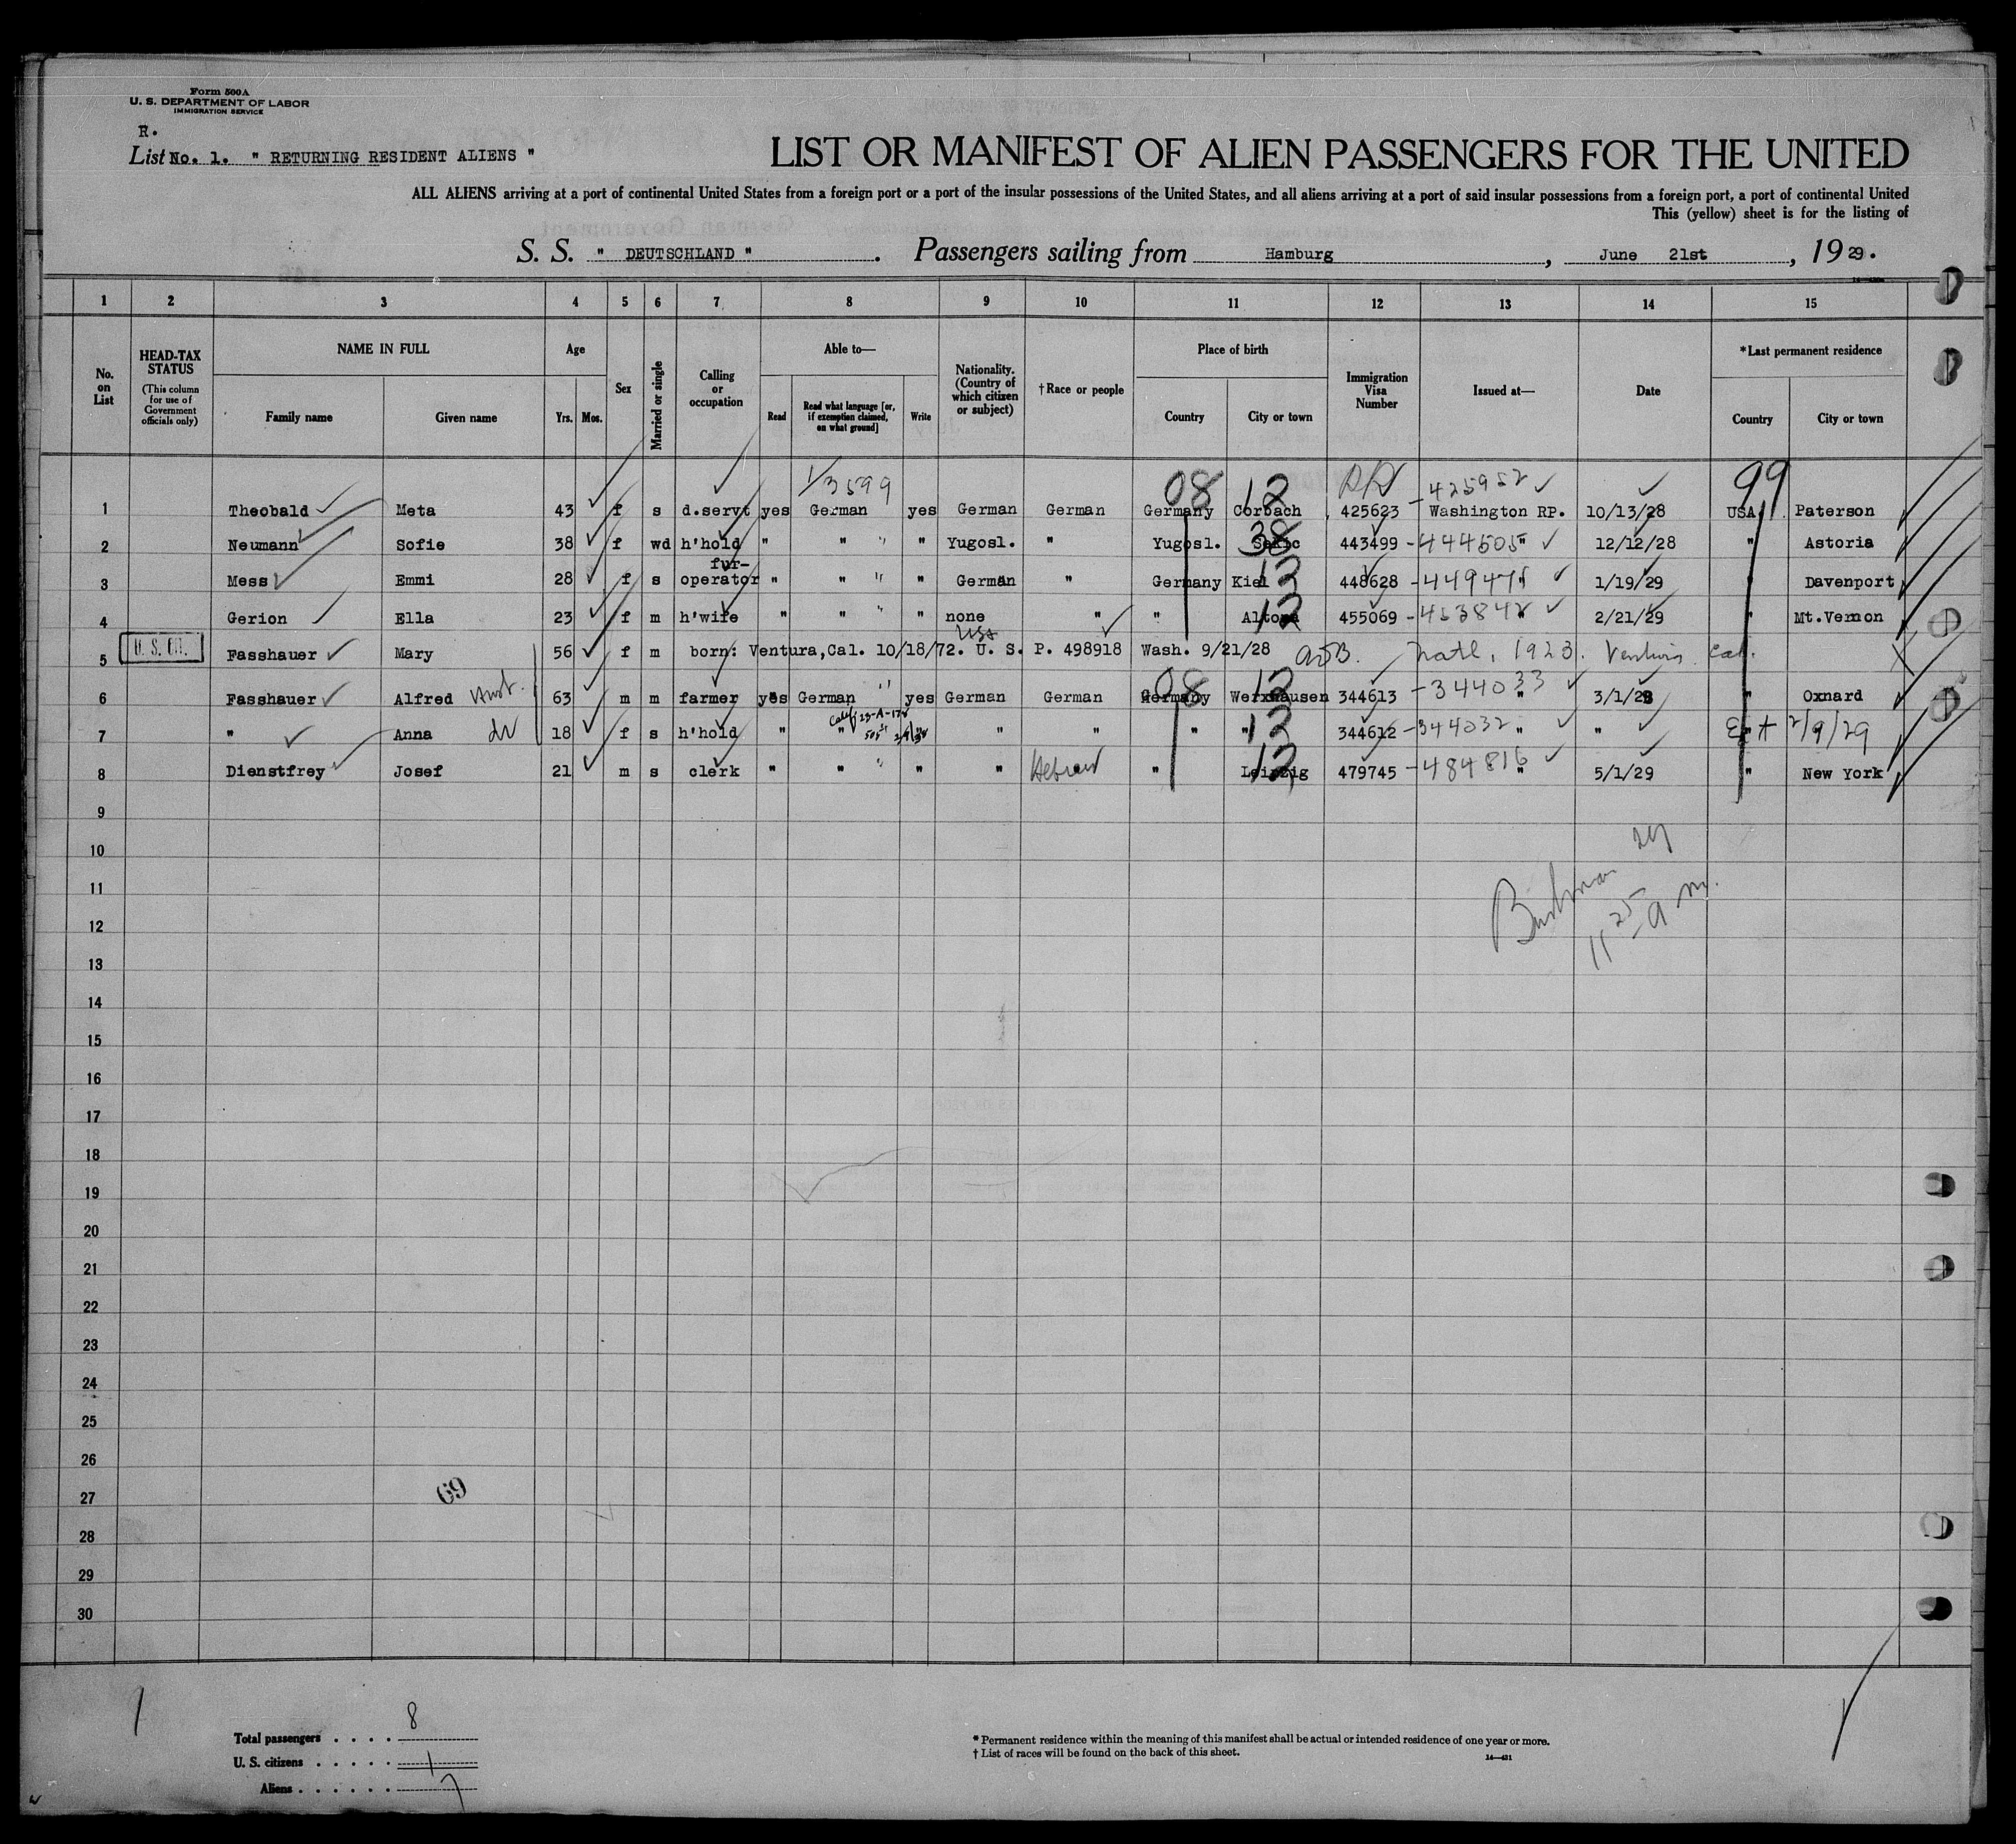 Form 500A
U. S. DEPARTMENT OF LABOR
IMMIGRATION SERVICE
R.
List No. 1. " RETURNING RESIDENT ALIENS "
LIST OR MANIFEST OF ALIEN PASSENGERS FOR THE UNITED
ALL ALIENS arriving at a port of continental United States from a foreign port or a port of the insular possessions of the United States, and all aliens arriving at a port of said insular possessions from a foreign port, a port of continental United
This (yellow) sheet is for the listing of
S. S. " DEUTSCHLAND " . Passengers sailing from Hamburg , June 21st , 19 29.
1 2 3 4 5 6 7 8 9 10 11 12 13 14 15
No. on List
HEAD-TAX STATUS (This column for use of Government officials only)
NAME IN FULL
Family name Given name
Age
Yrs. Mos.
Sex
Married or single
Calling or occupation
Able to—
Read
Read what language [or, if exemption claimed, on what ground]
Write
Nationality. (Country of which citizen or subject)
† Race or people
Place of birth
Country City or town
Immigration Visa Number
Issued at—
Date
*Last permanent residence
Country City or town
08 12 99
425952
1 Theobald Meta 43 f s d.servt yes German yes German German Germany Corbach 425623 Washington RP. 10/13/28 USA Paterson
2 Neumann Sofie 38 f wd h'hold " " " Yugosl. " Yugosl. 38 443499 -444505 " 12/12/28 " Astoria
fur-
3 Mess Emmi 28 f s operator " " " German " Germany Kiel 12 448628 1/19/29 " Davenport
4 Gerion Ella 23 f m h'wife " " " none " " Altona 12 455069 2/21/29 " Mt.Vernon
USA
5 U. S. Fasshauer Mary 56 f m born: Ventura,Cal. 10/18/72. U. S. P. 498918 Wash. 9/21/28 Natl. 1923. Ventura Cal.
6 Fasshauer Alfred 63 m m farmer yes German yes German German Germany 08 Werxhausen 12 344613 -344033 " 3/1/28 " Oxnard
7 " Anna 18 f s h'hold " " " " " " 12 344612 -344032 " " Ext 2/9/29
8 Dienstfrey Josef 21 m s clerk " " " " Hebrew " Leipzig 12 479745 -484816 " 5/1/29 " New York
9
10
11
12
11 25 a m.
13
14
15
16
17
18
19
20
21
22
23
24
25
26
27
69
28
29
30
Total passengers . . . . 8
U. S. citizens . . . . . 1
Aliens . . . . . . 7
* Permanent residence within the meaning of this manifest shall be actual or intended residence of one year or more.
† List of races will be found on the back of this sheet.
14—421